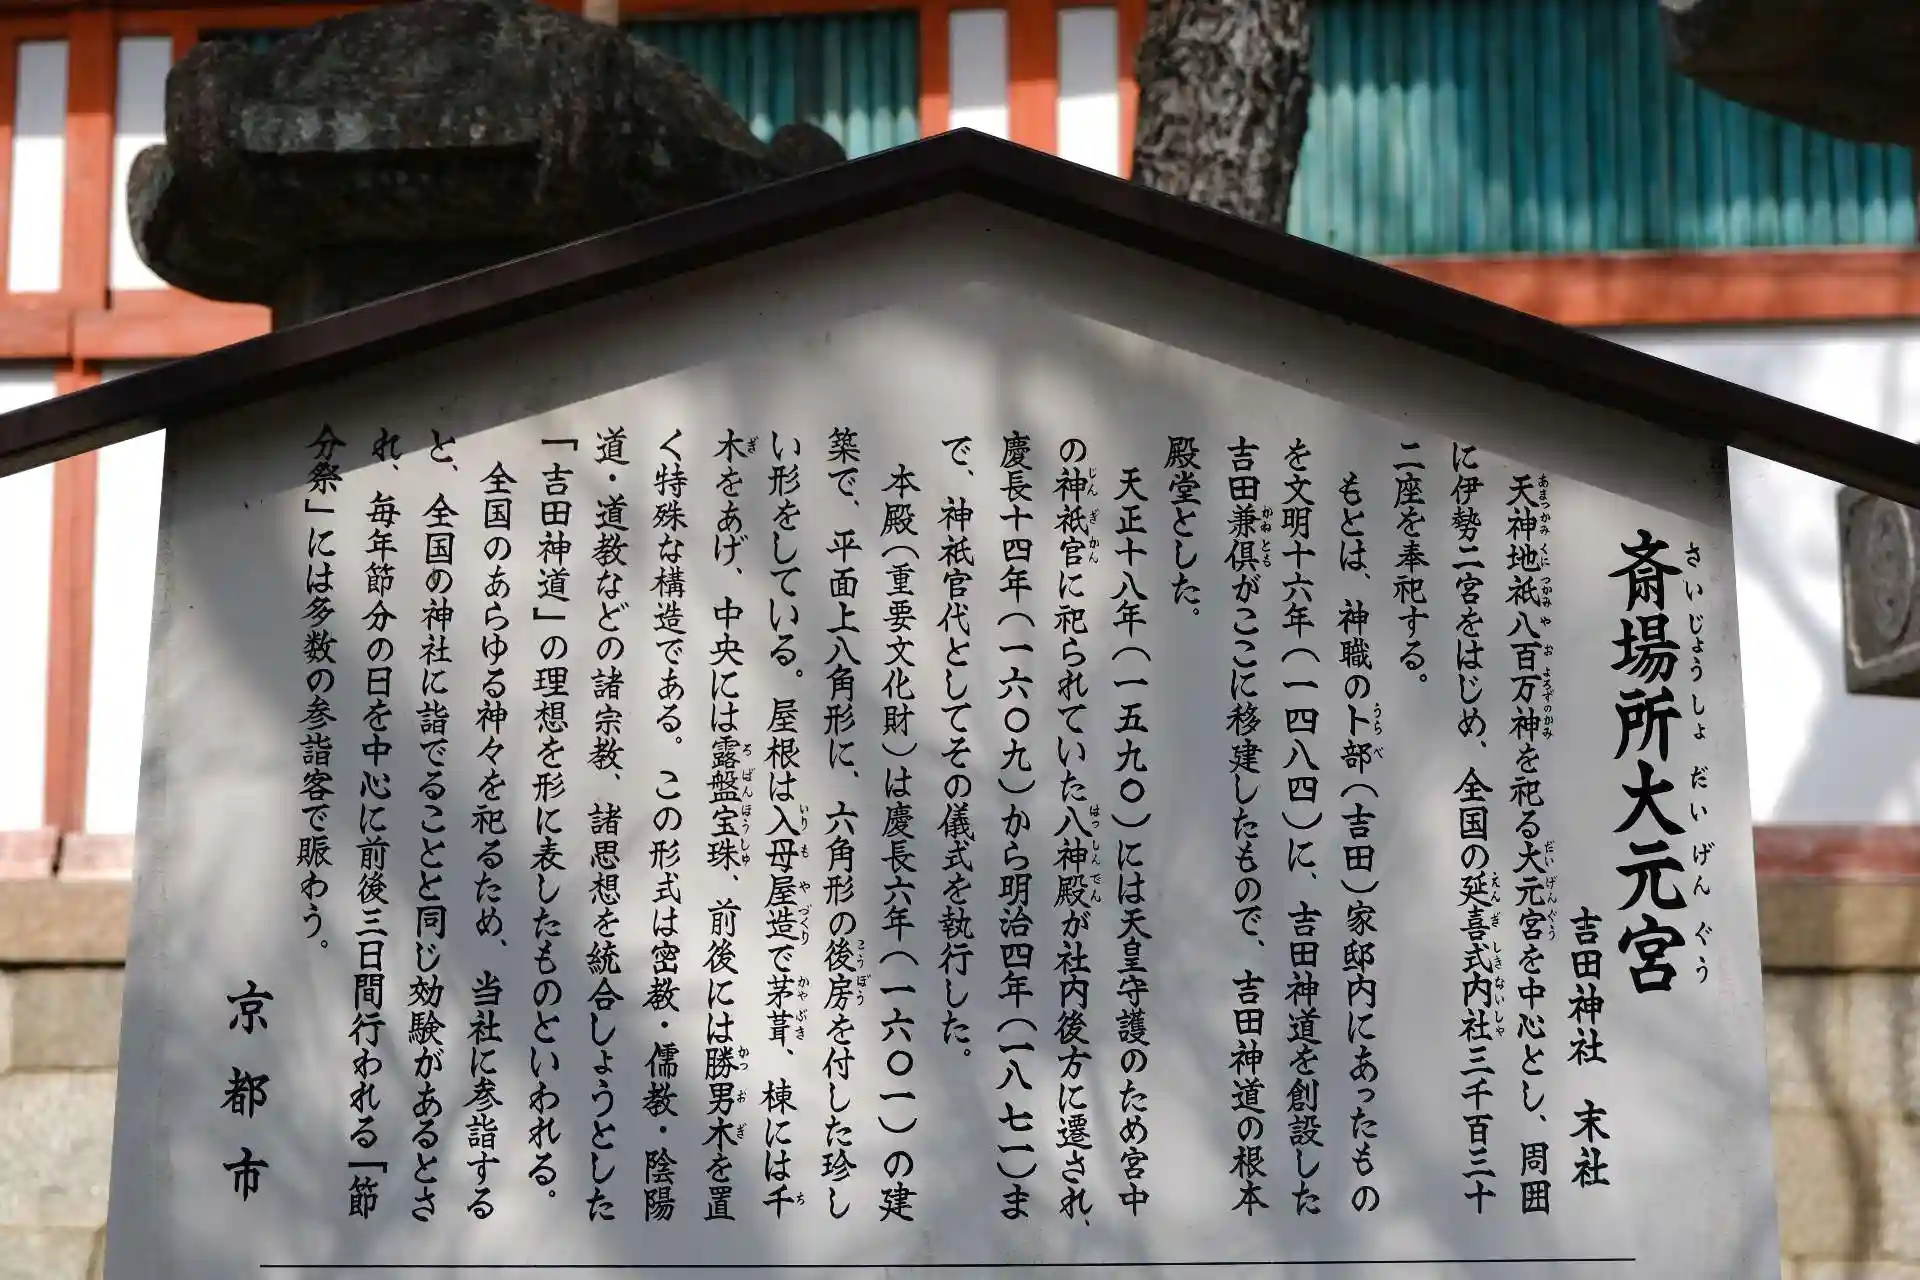 斎場所大元宮
さいじょうしょだいげんぐう
吉田神社 末社
天神地祇八百万神を祀る大元宮を中心とし、周囲
あまつかみくにつかみやおよろずのかみ だいげんぐう
に伊勢二宮をはじめ、全国の延喜式内社三千百三十
えんぎしきないしゃ
二座を奉祀する。
もとは、神職の卜部(吉田)家邸内にあったもの
うらべ
を文明十六年(一四八四)に、吉田神道を創設した
吉田兼倶がここに移建したもので、吉田神道の根本
かねとも
殿堂とした。
天正十八年(一五九〇)には天皇守護のため宮中
の神祇官に祀られていた八神殿が社内後方に遷され、
じんぎかん はっしんでん
慶長十四年(一六〇九)から明治四年(一八七一)ま
で、神祇官代としてその儀式を執行した。
本殿(重要文化財)は慶長六年(一六〇一)の建
築で、平面上八角形に、六角形の後房を付した珍し
こうぼう
い形をしている。屋根は入母屋造で茅葺、棟には千
いりもやづくり かやぶき ち
木をあげ、中央には露盤宝珠、前後には勝男木を置
ぎ ろばんほうしゅ かつおぎ
く特殊な構造である。この形式は密教・儒教・陰陽
道・道教などの諸宗教、諸思想を統合しようとした
「吉田神道」の理想を形に表したものといわれる。
全国のあらゆる神々を祀るため、当社に参詣する
と、全国の神社に詣でることと同じ効験があるとさ
れ、毎年節分の日を中心に前後三日間行われる「節
分祭」には多数の参詣客で賑わう。
京都市